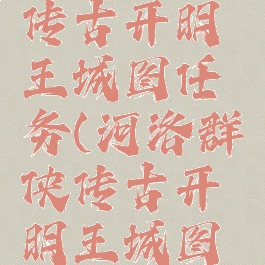 传古开明
王城图任
务(河洛群
侠传古开
明王城图